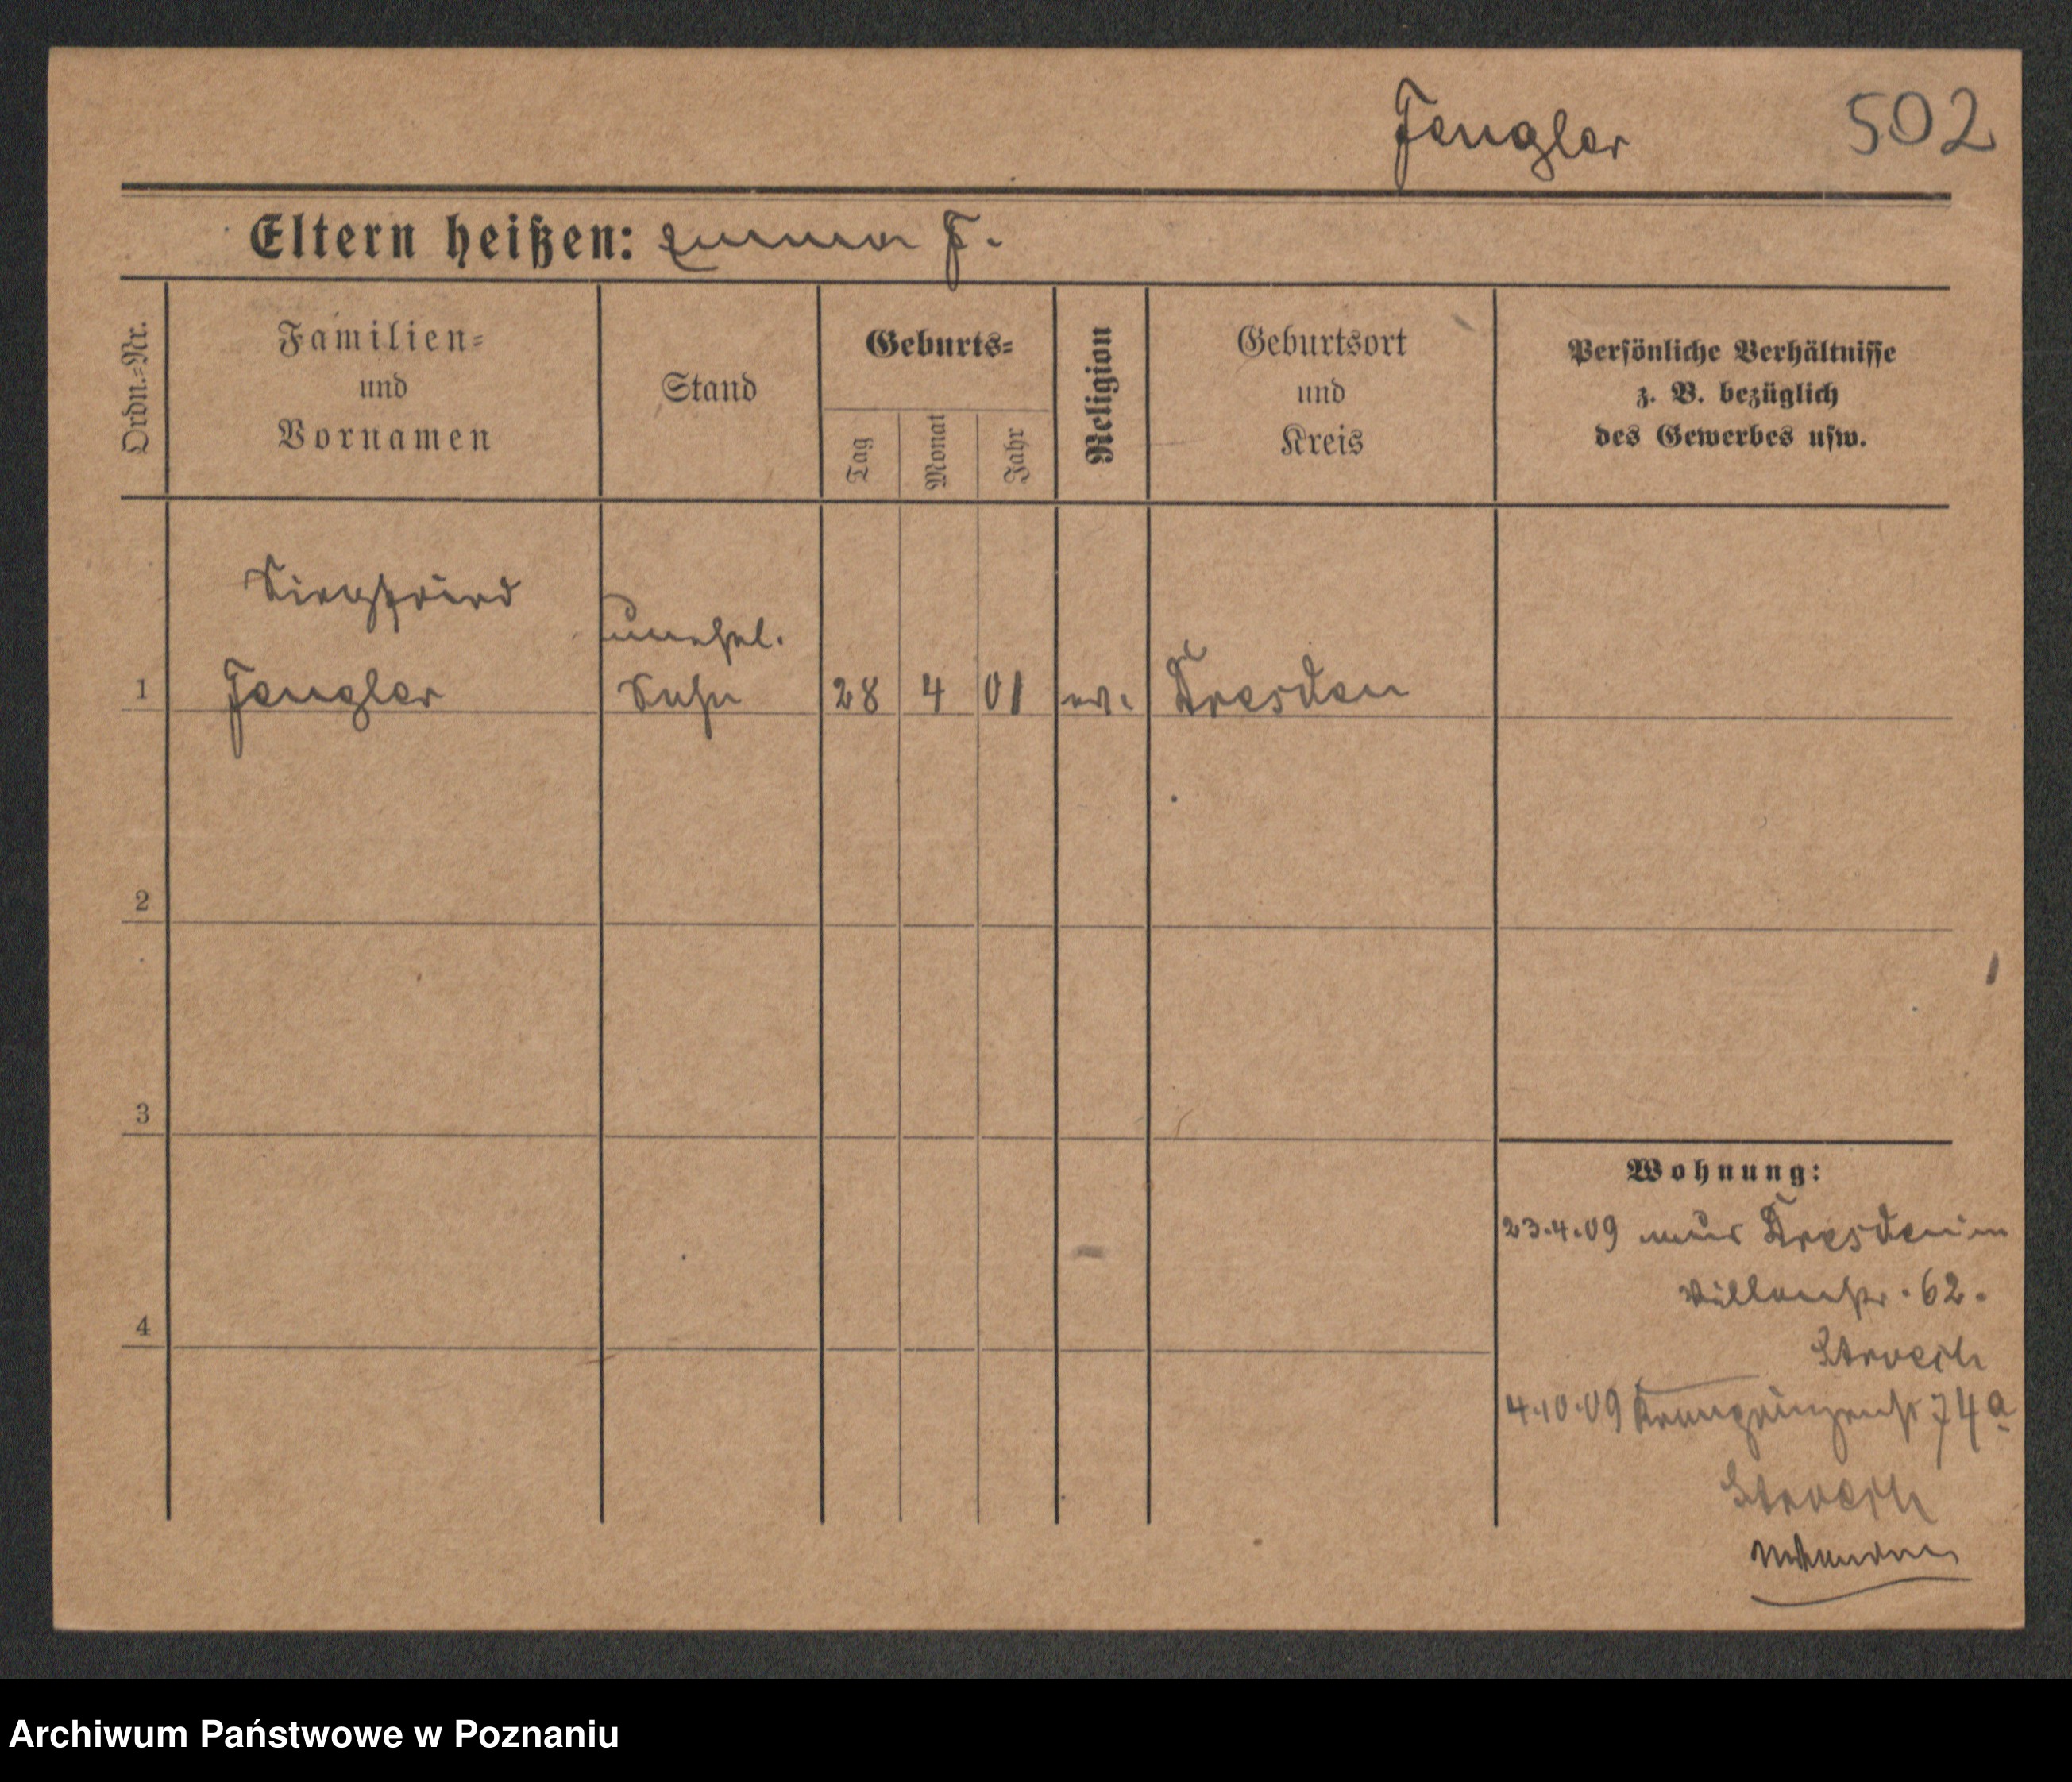 Fengler 502
Eltern heißen: Emma F.
Ordn.=Nr.
Familien=
und
Vornamen
Stand
Geburts=
Tag
Monat
Jahr
Religion
Geburtsort
und
Kreis
Persönliche Verhältnisse
z. B. bezüglich
des Gewerbes usw.
Siegfried
unehel.
1 Fengler Sohn 28 4 01 ev. Dresden
2
3
4
Wohnung:
23.4.09 aus Dresden in
Villenstr. 62.
4.10.09 Kronprinzenstr 74a
Archiwum Państwowe w Poznaniu